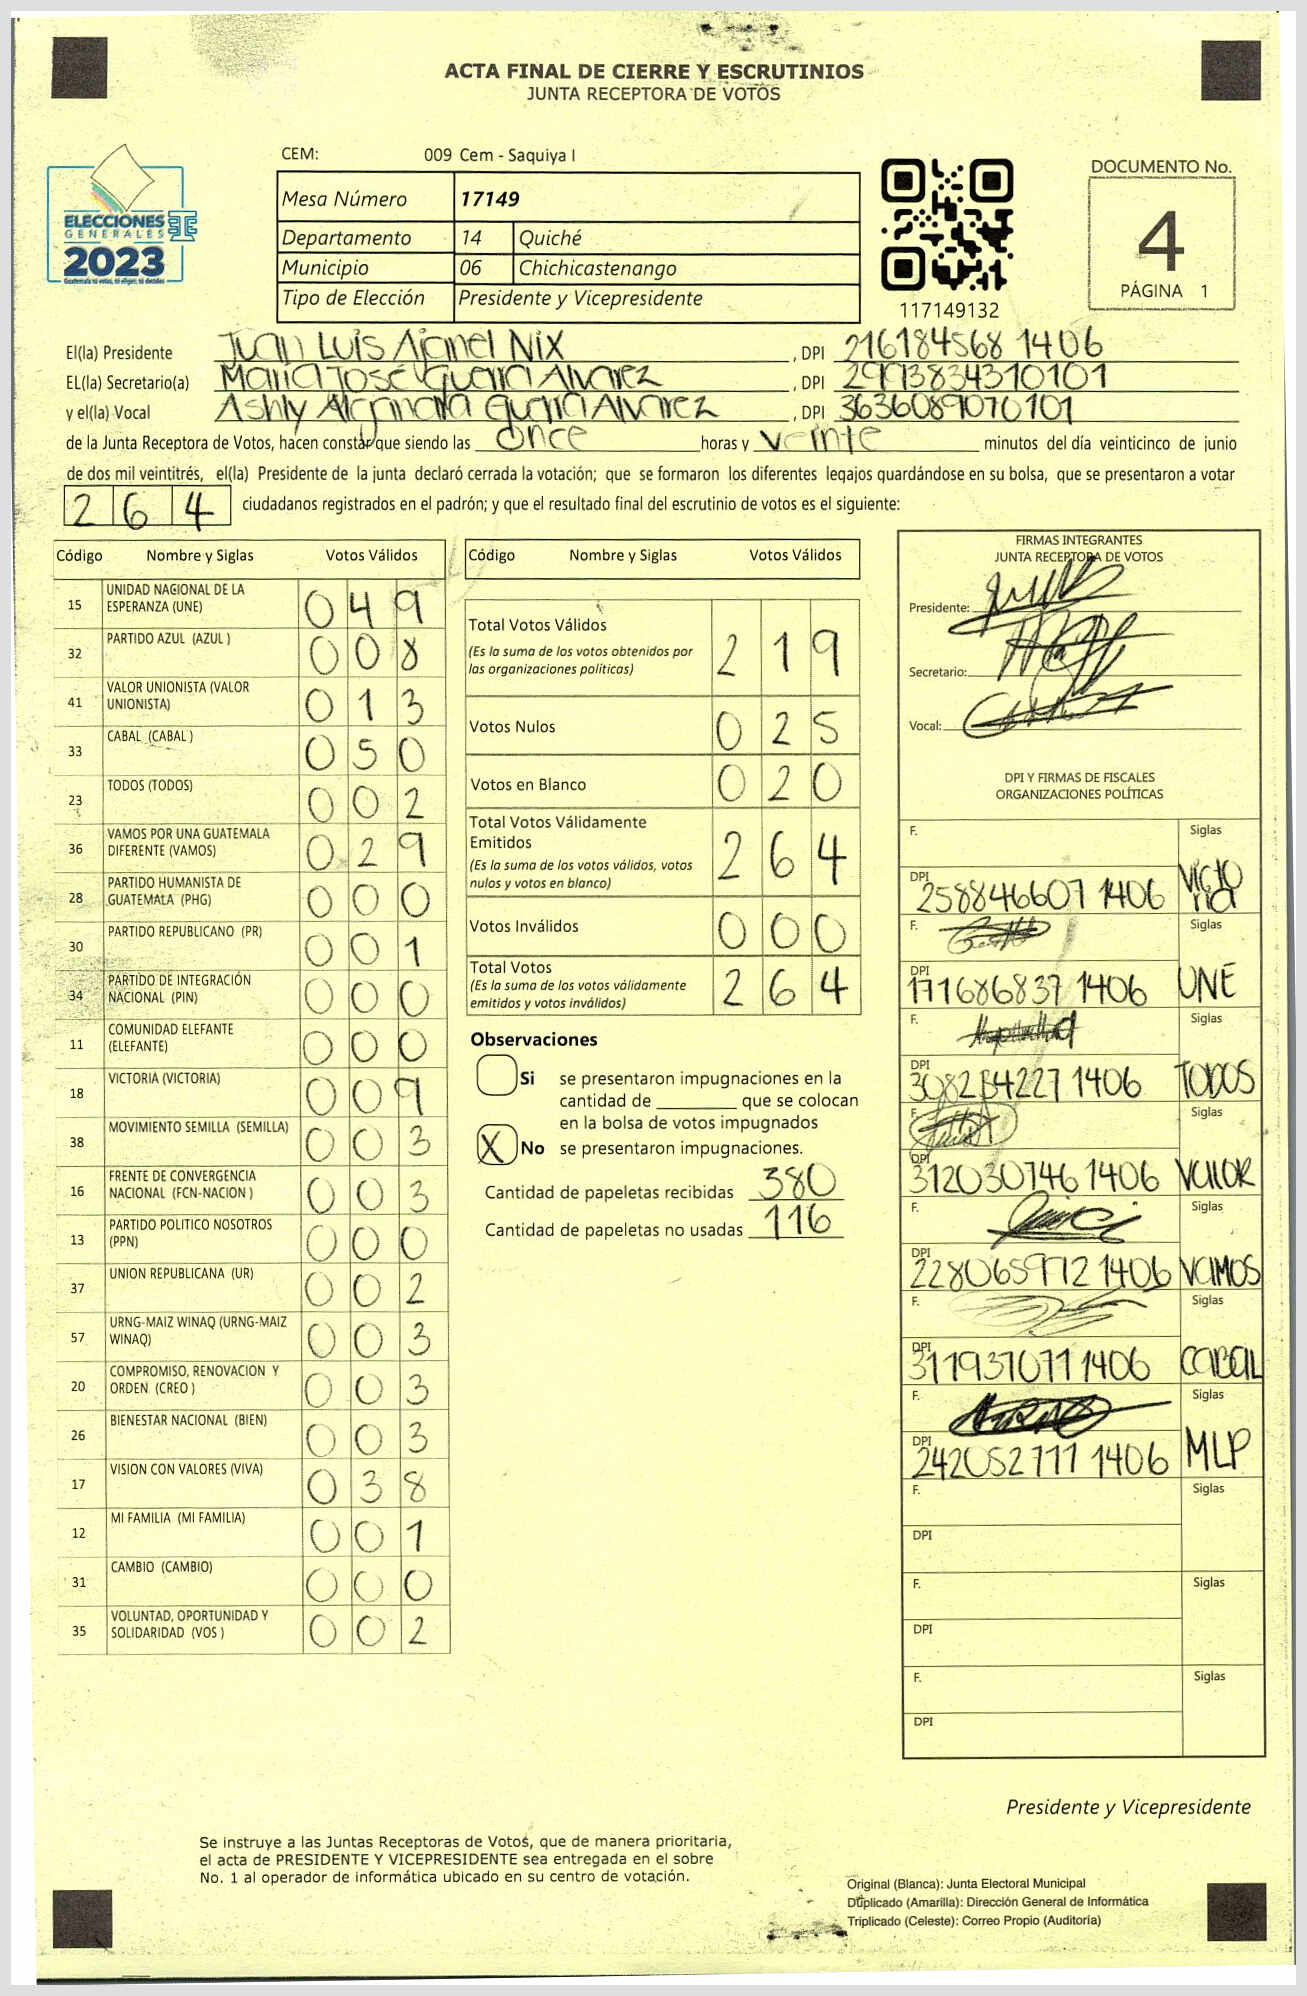 ACTA FINAL DE CIERRE Y ESCRUTINIOS
JUNTA RECEPTORA DE VOTOS
CEM: 009 Cem - Saquiya I
ELECCIONES
GENERALES
2023
Guatemala tú votas, tú eliges, tú decides
Mesa Número 17149
Departamento 14 Quiché
Municipio 06 Chichicastenango
Tipo de Elección Presidente y Vicepresidente
117149132
DOCUMENTO No.
4
PÁGINA 1
El(la) Presidente Juan Luis Ajanel Nix , DPI 216184568 1406
EL(la) Secretario(a) María José Guerra Alvarez , DPI 2993834310101
y el(la) Vocal Ashly Alejandra Guerra Alvarez , DPI 3636089070101
de la Junta Receptora de Votos, hacen constar que siendo las once horas y veinte minutos del día veinticinco de junio
de dos mil veintitrés, el(la) Presidente de la junta declaró cerrada la votación; que se formaron los diferentes legajos guardándose en su bolsa, que se presentaron a votar
264 ciudadanos registrados en el padrón; y que el resultado final del escrutinio de votos es el siguiente:
Código Nombre y Siglas Votos Válidos
15 UNIDAD NACIONAL DE LA ESPERANZA (UNE) 049
32 PARTIDO AZUL (AZUL ) 008
41 VALOR UNIONISTA (VALOR UNIONISTA) 013
33 CABAL (CABAL ) 050
23 TODOS (TODOS) 002
36 VAMOS POR UNA GUATEMALA DIFERENTE (VAMOS) 029
28 PARTIDO HUMANISTA DE GUATEMALA (PHG) 000
30 PARTIDO REPUBLICANO (PR) 001
34 PARTIDO DE INTEGRACIÓN NACIONAL (PIN) 000
11 COMUNIDAD ELEFANTE (ELEFANTE) 000
18 VICTORIA (VICTORIA) 009
38 MOVIMIENTO SEMILLA (SEMILLA) 003
16 FRENTE DE CONVERGENCIA NACIONAL (FCN-NACION ) 003
13 PARTIDO POLITICO NOSOTROS (PPN) 000
37 UNION REPUBLICANA (UR) 002
57 URNG-MAIZ WINAQ (URNG-MAIZ WINAQ) 003
20 COMPROMISO, RENOVACION Y ORDEN (CREO ) 003
26 BIENESTAR NACIONAL (BIEN) 003
17 VISION CON VALORES (VIVA) 038
12 MI FAMILIA (MI FAMILIA) 001
31 CAMBIO (CAMBIO) 000
35 VOLUNTAD, OPORTUNIDAD Y SOLIDARIDAD (VOS ) 002
Código Nombre y Siglas Votos Válidos
Total Votos Válidos 219
(Es la suma de los votos obtenidos por
las organizaciones políticas)
Votos Nulos 025
Votos en Blanco 020
Total Votos Válidamente
Emitidos 264
(Es la suma de los votos válidos, votos
nulos y votos en blanco)
Votos Inválidos 000
Total Votos 264
(Es la suma de los votos válidamente
emitidos y votos inválidos)
Observaciones
Si se presentaron impugnaciones en la
cantidad de ________ que se colocan
en la bolsa de votos impugnados
X No se presentaron impugnaciones.
Cantidad de papeletas recibidas 380
Cantidad de papeletas no usadas 116
FIRMAS INTEGRANTES
JUNTA RECEPTORA DE VOTOS
Presidente:
Secretario:
Vocal:
DPI Y FIRMAS DE FISCALES
ORGANIZACIONES POLÍTICAS
F. Siglas
DPI 258846607 1406 Victoria
F. Siglas
DPI 171686837 1406 UNE
F. Siglas
DPI 1406 TODOS
F. Siglas
DPI 312030746 1406 Valor
F. Siglas
DPI 228065992 1406 Vamos
F. Siglas
DPI 311937071 1406 Cabal
F. Siglas
DPI 242052777 1406 MLP
F. Siglas
DPI
F. Siglas
DPI
F. Siglas
DPI
Presidente y Vicepresidente
Se instruye a las Juntas Receptoras de Votos, que de manera prioritaria,
el acta de PRESIDENTE Y VICEPRESIDENTE sea entregada en el sobre
No. 1 al operador de informática ubicado en su centro de votación.
Original (Blanca): Junta Electoral Municipal
Duplicado (Amarilla): Dirección General de Informática
Triplicado (Celeste): Correo Propio (Auditoría)